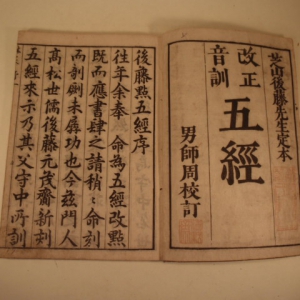 芝山後藤先生定本
改正
音訓
五經
男師周校訂
後藤點五經序
往年余奉　命為五經改點
既而應書肆之請稍々命刻
而剞劂未歸功也今玆門人
高松世儒後藤元茂齋新刻
五經來示乃其父守中所訓